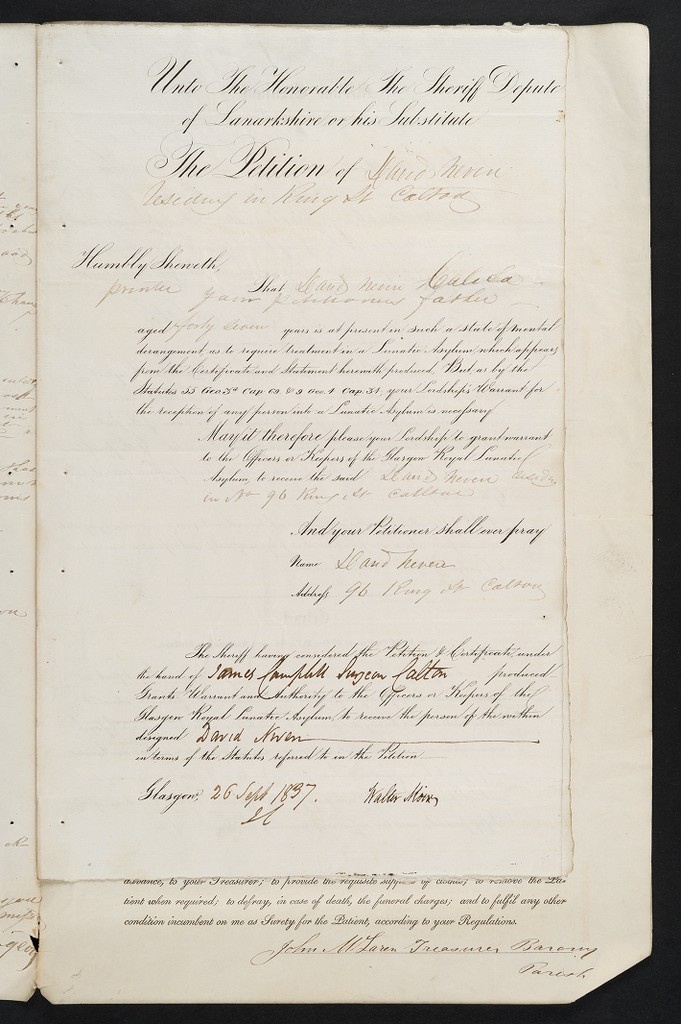 Unto The Honorable The Sheriff Depute
of Lanarkshire or his Substitute
The Petition of David Neven
residing in King St Calton
Humbly Sheweth,
That David Neven Calico
printer your petitioners father
aged forty seven years is at present in such a state of mental
derangement as to require treatment in a Lunatic Asylum, which appears
from the Certificate and Statement herewith produced. But as by the
Statutes 55 Geo. 3rd Cap. 69. & 9 Geo. 4 Cap. 34, your Lordship's Warrant for
the reception of any person into a Lunatic Asylum is necessary
May it therefore please your Lordship to grant warrant
to the Officers or Keepers of the Glasgow Royal Lunatic
Asylum, to receive the said David Neven residing
in No 96 King St Calton
And your Petitioner shall ever pray
Name David Neven
Address 96 King St Calton
The Sheriff having considered the Petition & Certificate, under
the hand of James Campbell Surgeon Calton produced
Grants Warrant and Authority to the Officers or Keepers of the
Glasgow Royal Lunatic Asylum, to receive the person of the within
designed David Neven
in terms of the Statutes referred to in the Petition
Glasgow, 26 Sept 1837. Walter Moir
advance, to your Treasurer; to provide the requisite supplies of clothes; to remove the Pa-
tient when required; to defray, in case of death, the funeral charges; and to fulfil any other
condition incumbent on me as Surety for the Patient, according to your Regulations.
John McLaren Treasurer Barony
Parish